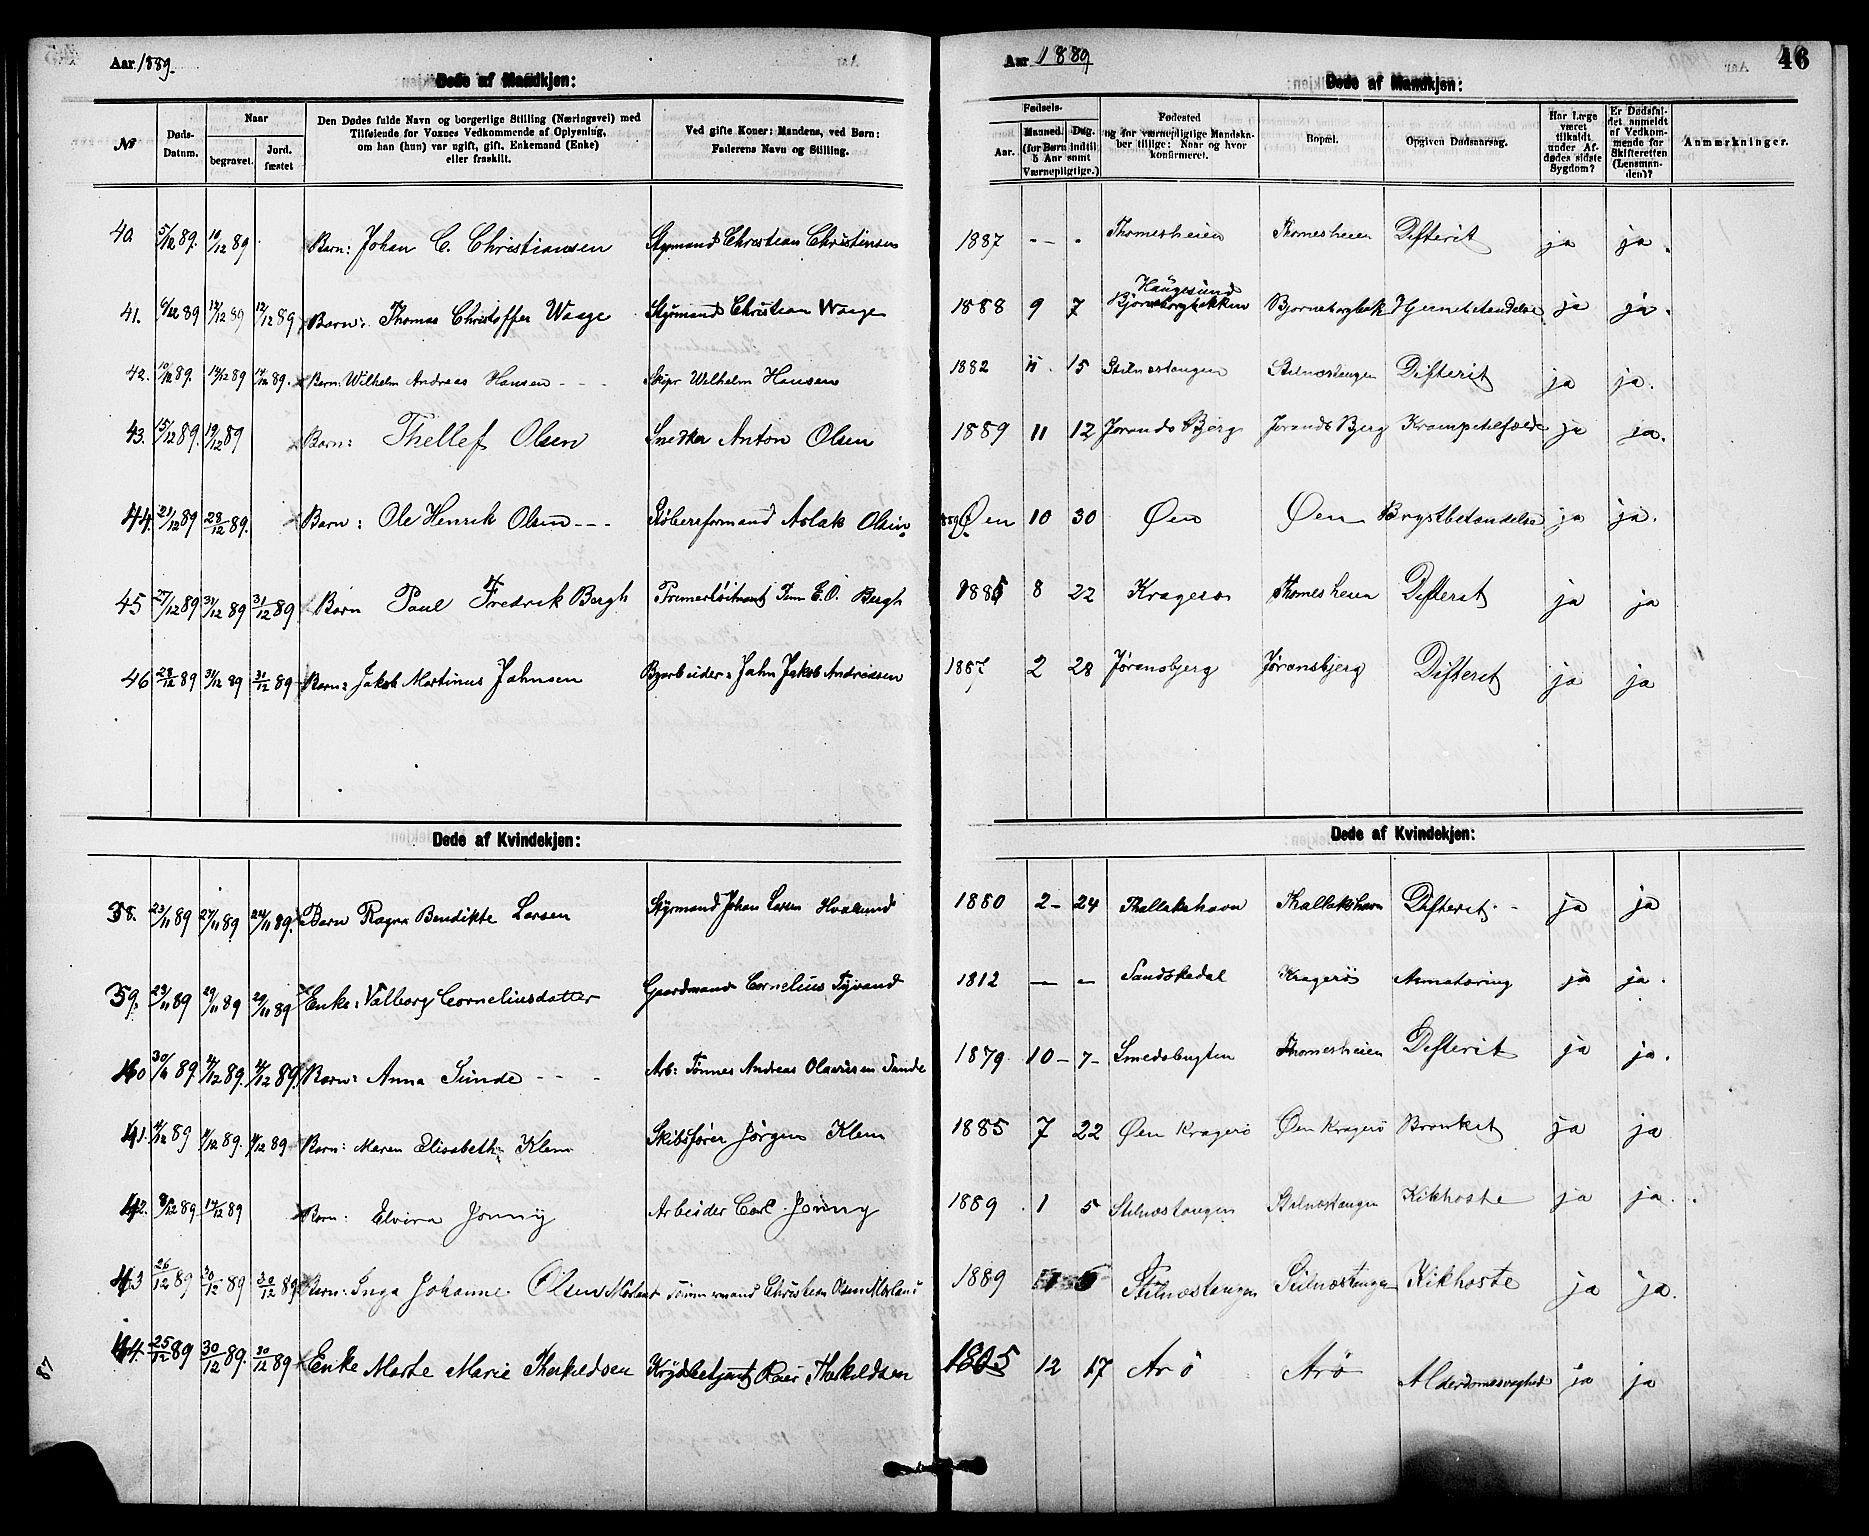 Aar 1889.
Døde af Mandkjøn:
Aar 1889
Døde af Mandkjøn:
46
№ | Døds-Datum. | Naar begravet. | Jord-fæstet | Den Dødes fulde Navn og borgerlige Stilling (Næringsvei) med Tilføiende for Voxnes Vedkommende af Oplysning, om han (hun) var ugift, gift, Enkemand (Enke) eller fraskilt. | Ved gifte Koner: Mandens, ved Børn: Faderens Navn og Stilling. | Fødsels- Aar. | Maaned. Dag. (for Børn indtil 5 Aar samt Værnepligtige.) | Fødested og for værnepligtige Mandskaber tillige: Naar og hvor konfirmeret. | Bopæl. | Opgiven Dødsaarsag. | Har Læge været tilkaldt under Afdødes sidste Sygdom? | Er Dødsfaldet anmeldt af Vedkommende for Skifteretten (Lensmanden)? | Anmærkninger.
40. 5/12 89. 10/12 89 Barn: Johan C. Christiansen Styrmand Christian Christinsen 1887 - - - Thomesheien Thomesheien Difterit ja ja.
41. 6/12 89 12/12 89 12/12 89 Barn: Thomas Christoffer Waage Styrmand Christian Waage 1888 9 7 Haugesund Bjørnsborgbakken Bjørneborgbak Hjernebetændelse ja ja.
42. 10/12 89. 14/12 89 14/12 89. Barn: Wilhelm Andreas Hansen - - - Skipr Wilhelm Hansen 1882 11. 15 Stilnestangen Stilnæstangen Difterit ja ja.
43. 15/12 89. 19/12 89 Barn: Thellef Olsen Snedker Anton Olsen 1889 11 12 Jorands Bjerg Jorands Bjerg Krampetilfælde ja ja.
44. 21/12 89 28/12 89. Barn: Ole Henrik Olsen - - - Støbersformand Aslak Olsen. Øen 10 30 Øen Øen Brystbetændelse ja ja.
45 27/12 89 31/12 89 31/12 89 Barn Paul Fredrik Bergh Premierløitnant E.O. Bergh 1885 8 22 Kragerø Thomesheien Difterit ja ja
46 28/12 89 31/12 89 31/12 89 Barn: Jakob Martinus Johnsen Byarbeider: John Jakob Andreasen 1887 2 28 Jøransbjerg Jøransbjerg Difterit ja ja
Døde af Kvindekjøn:
Døde af Kvindekjøn:
38. 23/11 89 27/11 89 27/11 89. Barn Ragna Bendikte Larsen Styrmand Johan Larsen Hvalsund 1880 2- 24 Thallakshavn Thallakshavn Difterit. - ja ja
39. 23/11 89 29/11 89 29/11 89 Enke: Valborg Corneliusdatter Gaardmand Cornelius Tyvand 1812 — - Sandøkedal Kragerø ja ja.
40 30/11 89. 4/12 89. 4/12 89. Barn: Anna Sunde - - - Arb: Tønnes Andreas Olavesen Sunde 1879 10- 7- Smedsbugten Thomesheien Difterit ja ja.
41. 4/12 89 11/12 89. 11/12 89 Barn: Maren Elisabeth Klem Skibsfører Jørgen Klem 1885 7 22 Øen Kragerø Øen Kragerø Bronkit ja ja
42. 8/12 89 14/12 89 Barn: Elvira Jonny Arbeider Carl Jonny 1889. 1 5 Stilnæstangen Stilnæstangen Kikhoste ja ja.
43 26/12 89 30/12 89 30/12 89 Barn: Inga Johanne Olsen Morland Tømmermand Christian Olsen Morland 1889 Stilnæstangen Stilnæstangen Kikhoste ja ja.
44. 25/12 89 30/12 89. 30/12 89 Enke Marte Marie Therkeldsen Krydsbetjent Roer Therkeldsen 1805 12 17 Arø Arø Alderdomssvaghed ja ja